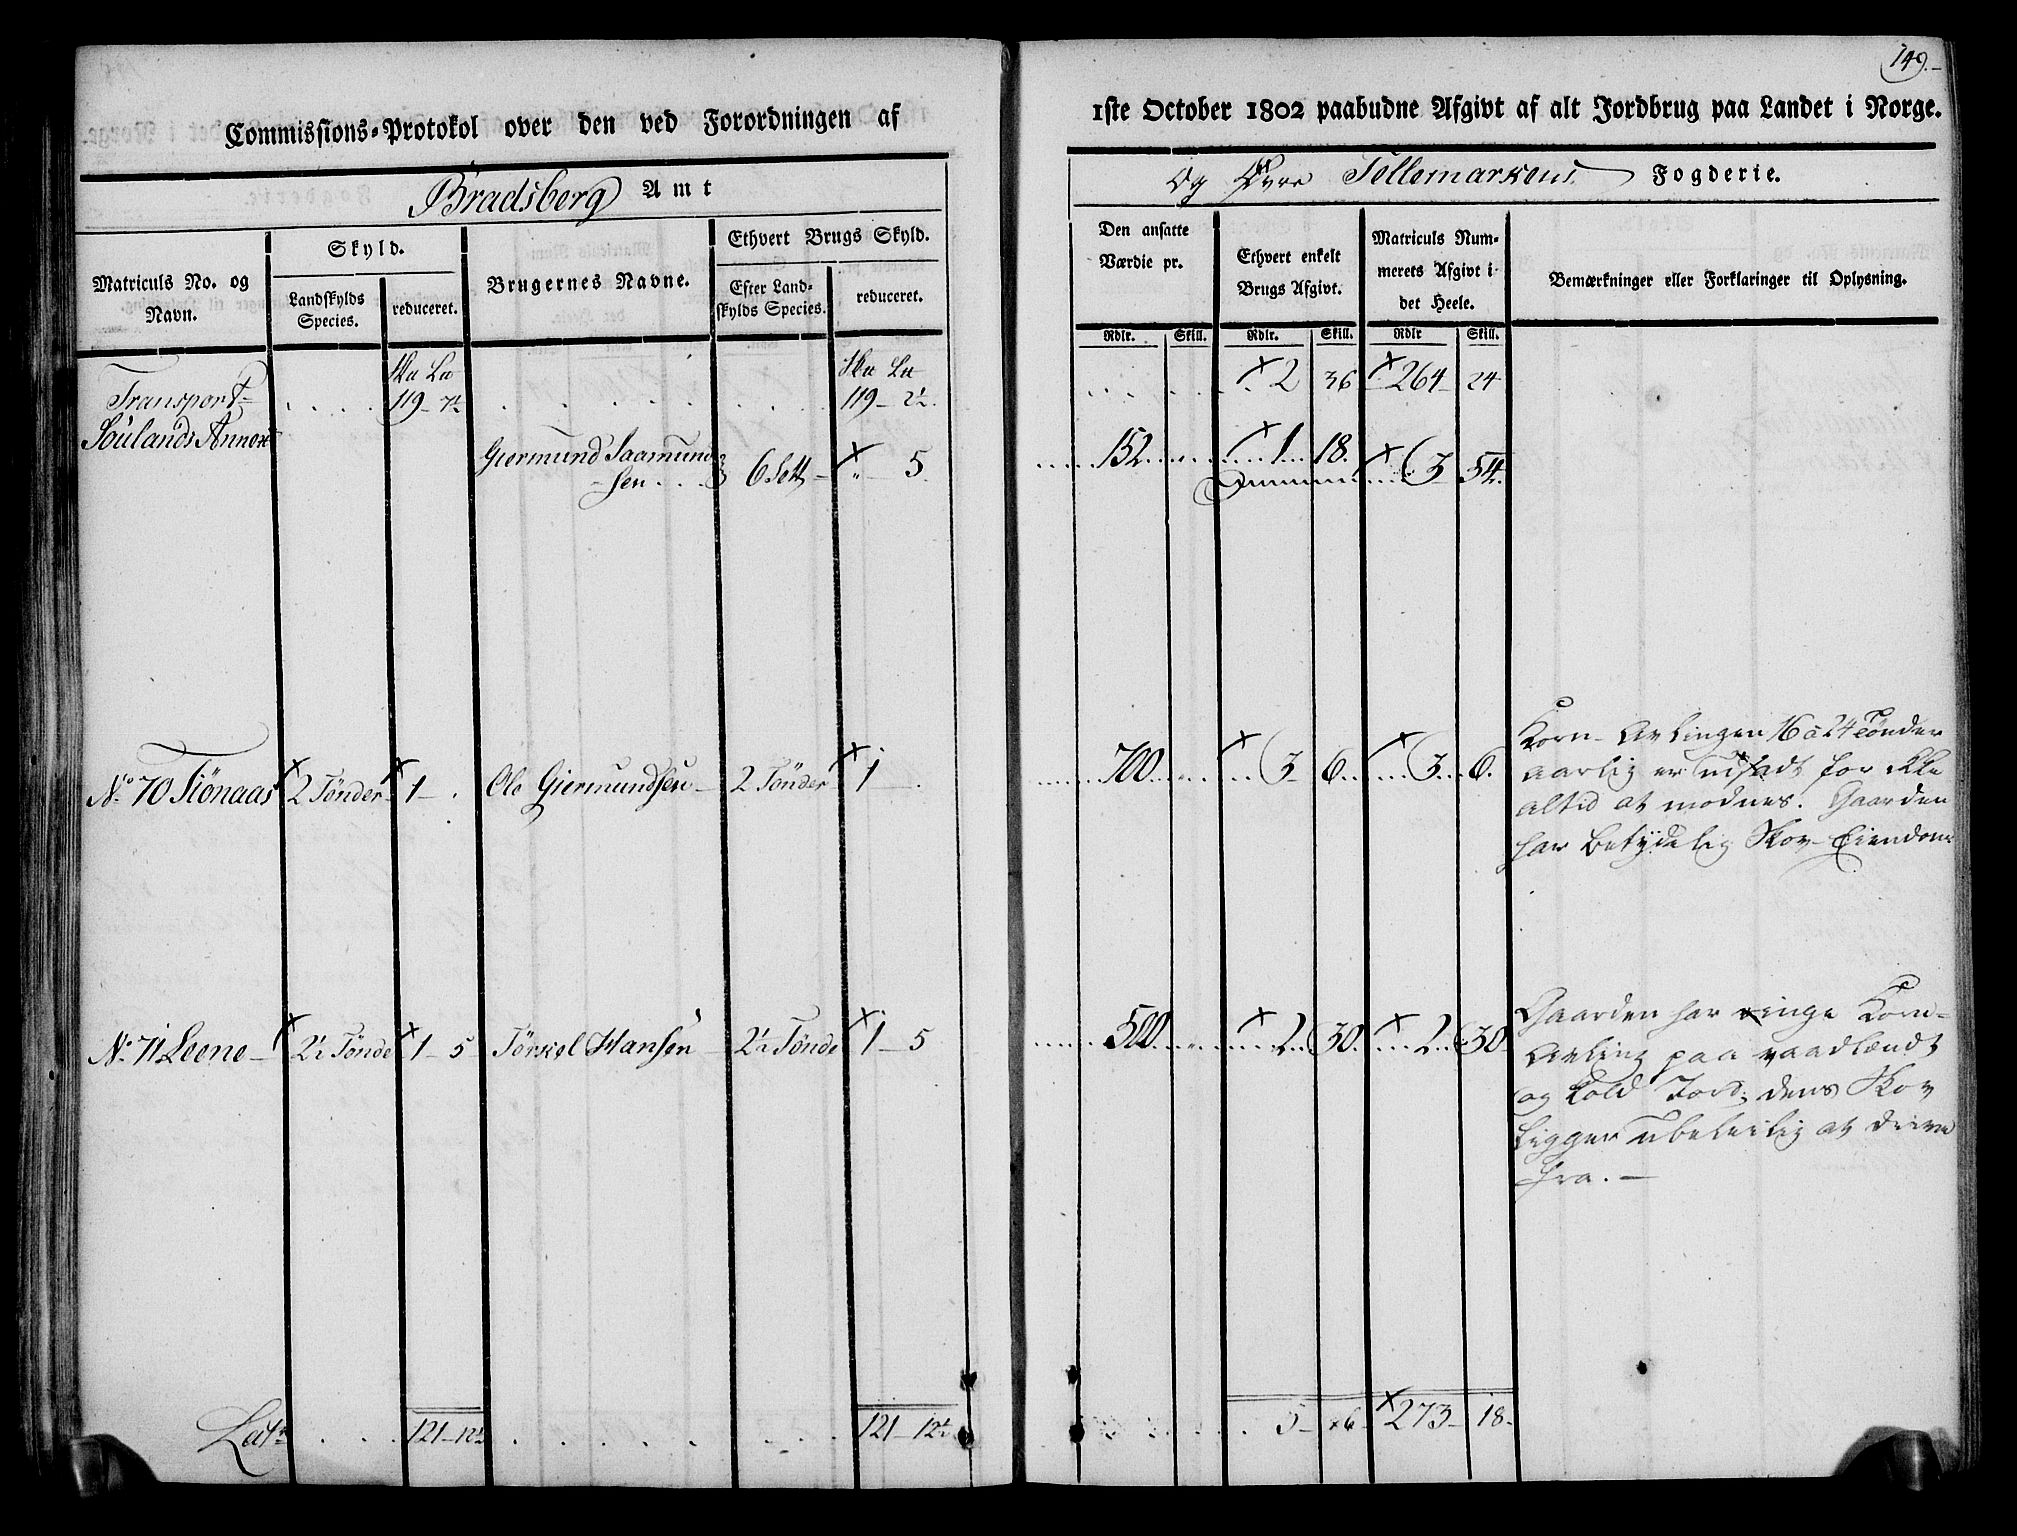 149.
Commissions-Protokol over den ved Forordningen af
1ste October 1802 paabudne Afgivt af alt Jordbrug paa Landet i Norge.
Bradsberg Amt
og Øvre Tellemarkens Fogderie.
Matriculs No. og Navn.
Skyld.
Landskylds Species.
reduceret.
Brugernes Navne.
Ethvert Brugs Skyld.
Efter Landskylds Species.
reduceret.
Den ansatte Værdie pr.
Ethvert enkelt Brugs Afgivt.
Matriculs Nummerets Afgivt i det Heele.
Bemærkninger eller Forklaringer til Oplysning.
Rdlr. Skill. Rdlr. Skill. Rdlr Skill.
Transport 119 7½ 119 2½ 2 36 264 24
Soulands Annex
Giermund Saamund-
sen 6 Sett " 5 152 1 18 3 54
No. 70 Tiönaas 2 Tönder 1 Ole Giermundsen 2 Tönder 1 700 3 6 3 6
Korn-Avlingen 16 à 24 Tönder
aarlig er udsadt for ikke
altid at modnes. Gaarden
har betydelig Skov-Eiendom
No. 71 Leene 2½ Tönde 1 5 Törkel Hansen 2½ Tönde 1 5 500 2 30 2 30
Gaarden har ringe Korn-
Avling paa vaadlændt
og kold Jord; dens Skov
ligger ubeleilig at drive
fra.
Lat. 121 12½ 121 12½ 5 6 273 18